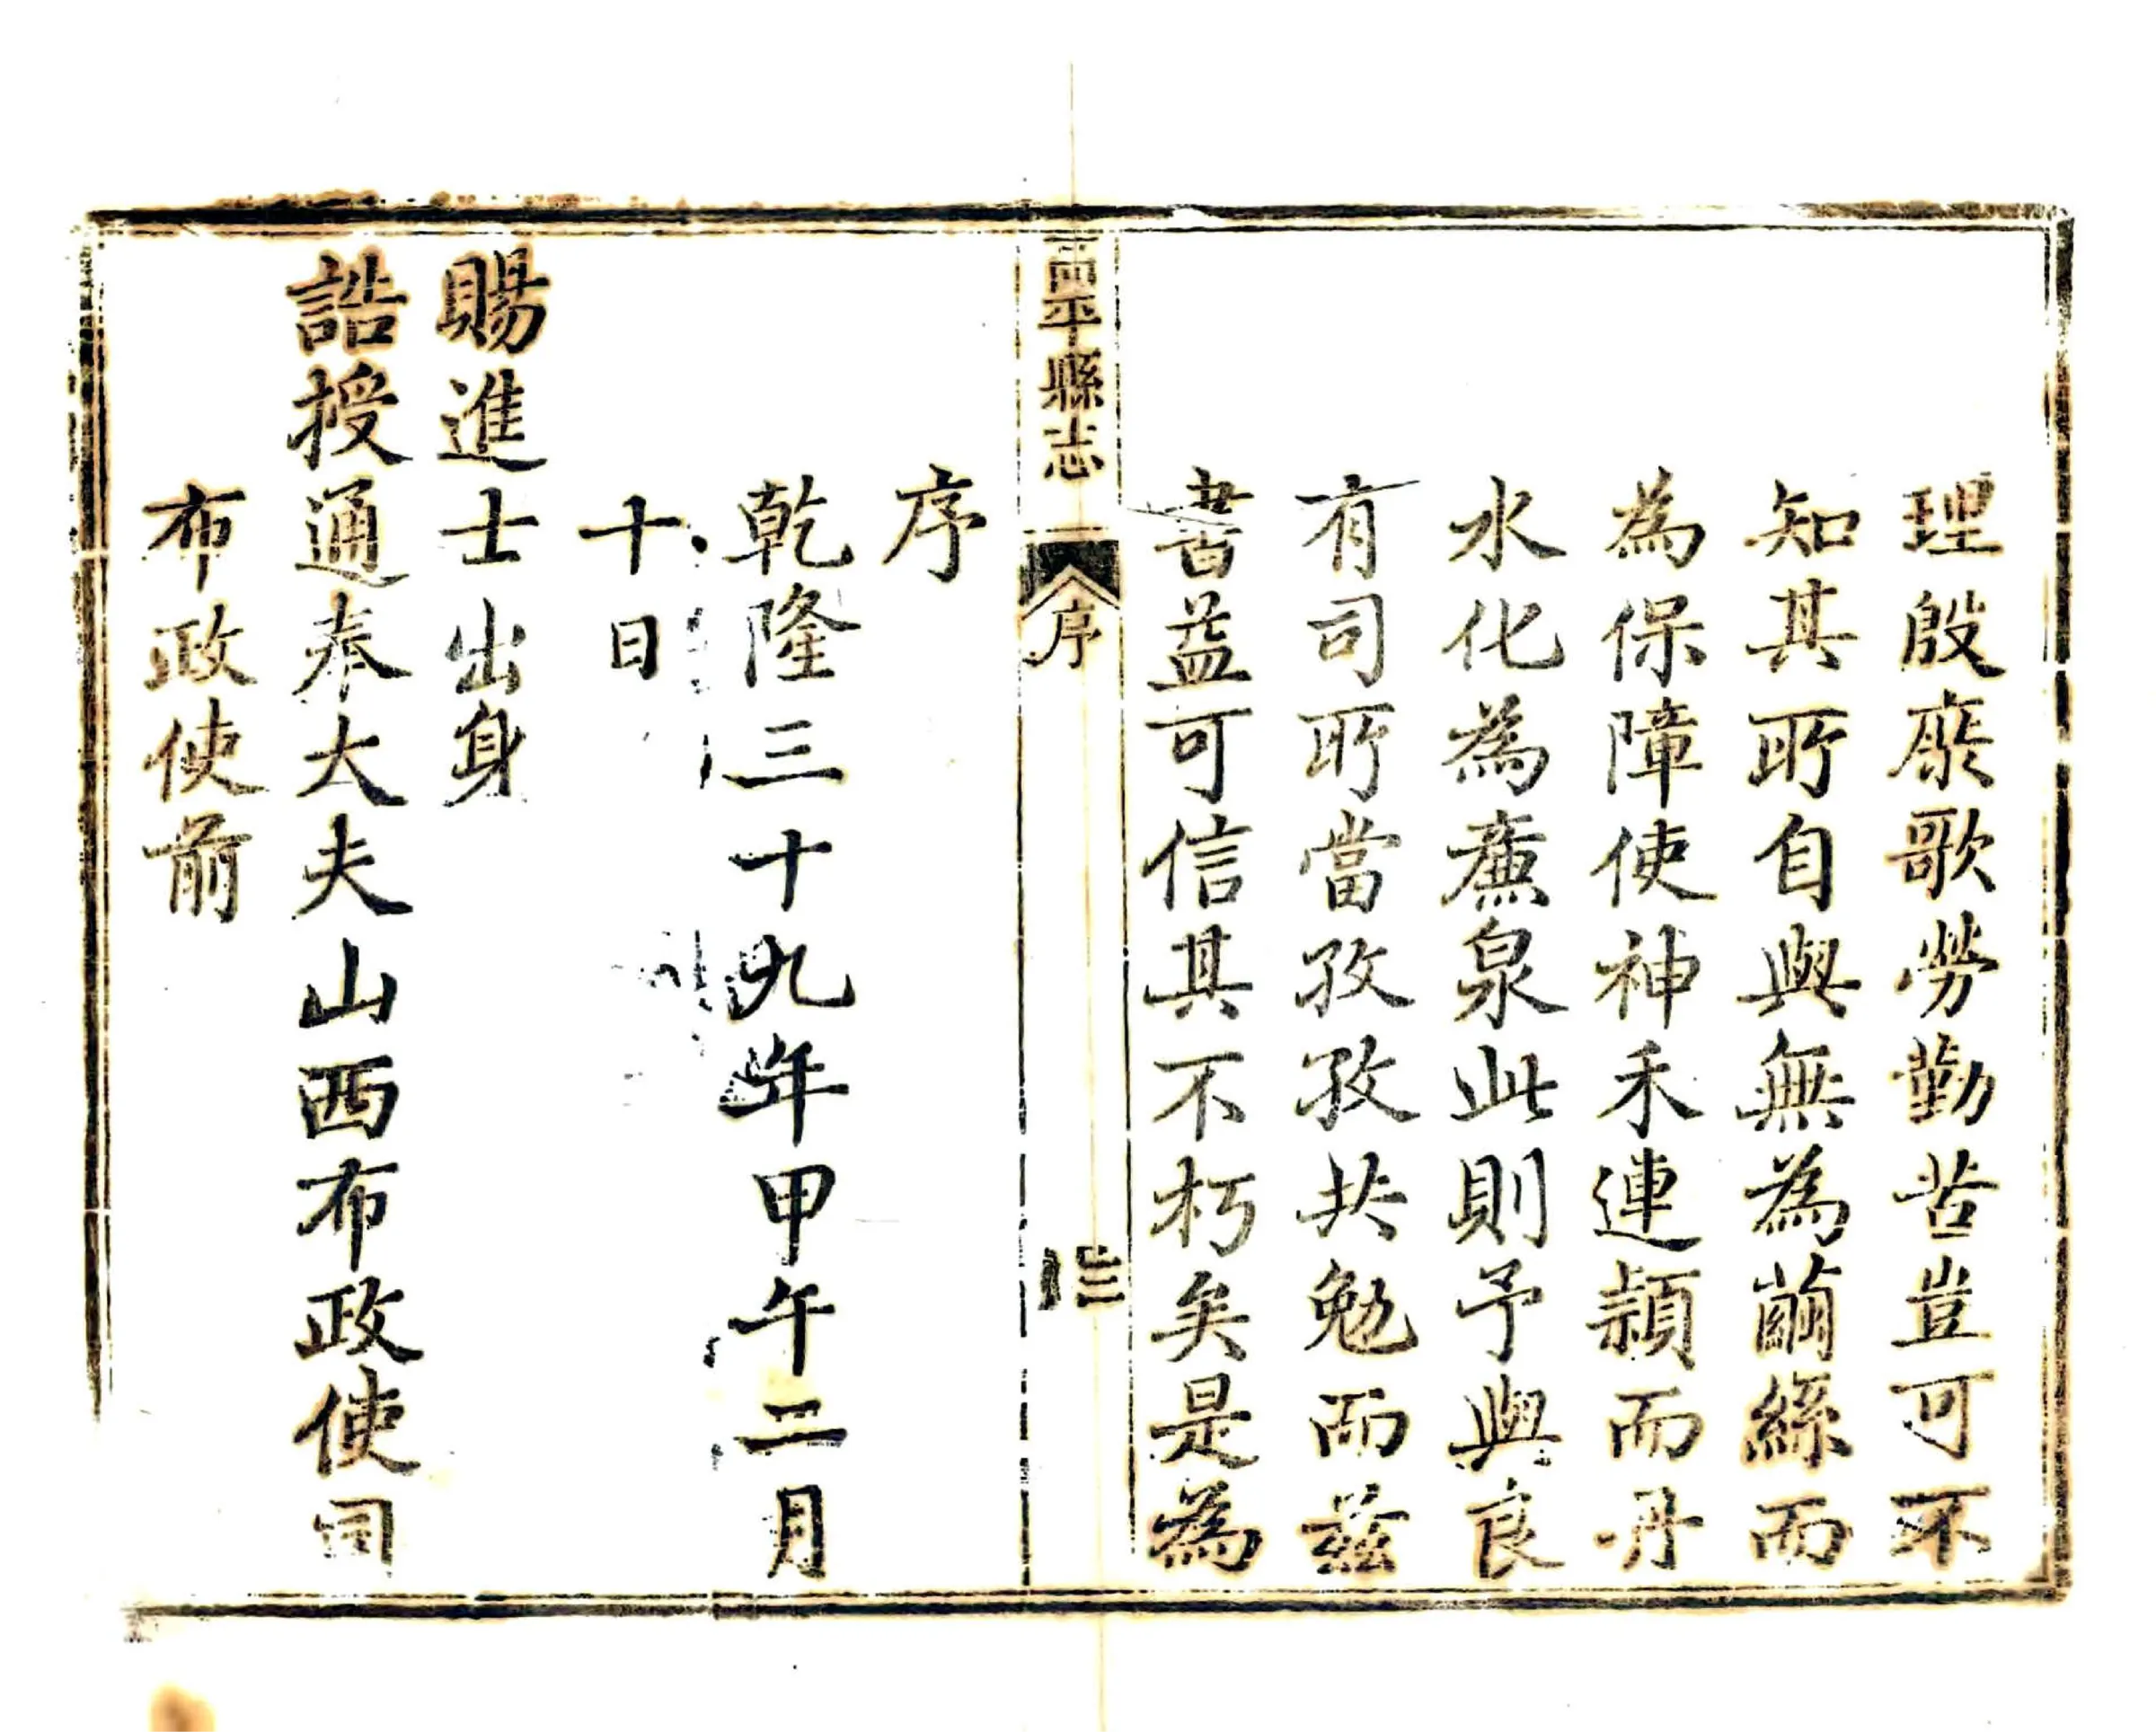 理殷賡歌勞勤昔豈可不
知其所自與無為繭絲而
為保障使神禾連穎而丹
水化為廉泉此則予與良
有司所當孜孜共勉而茲
書益可信其不朽矣是為
高平縣志
序
三
序
乾隆三十九年甲午二月
十日
賜進士出身
誥授通奉大夫山西布政使司
布政使前